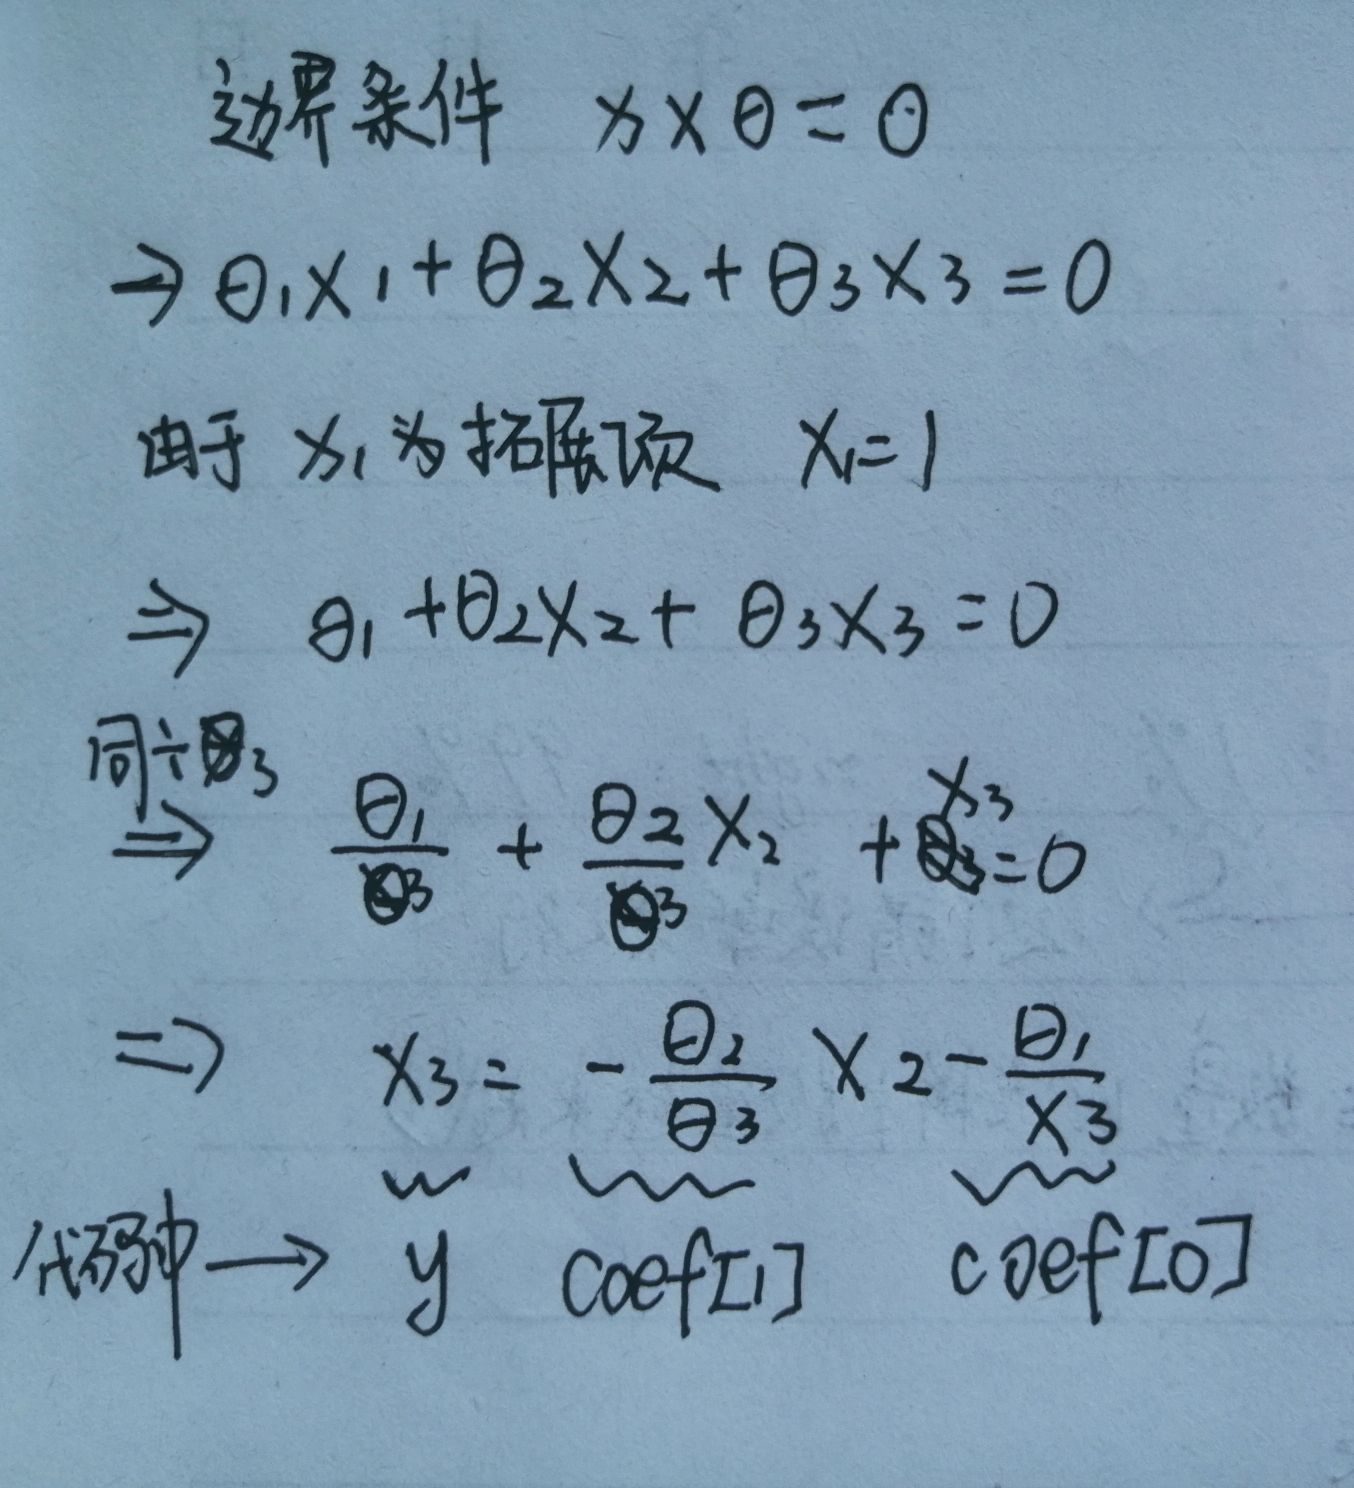 边界条件 x × θ = 0
→ θ₁x₁ + θ₂x₂ + θ₃x₃ = 0
由于 x₁ 为拓展项 x₁ = 1
⇒ θ₁ + θ₂x₂ + θ₃x₃ = 0
同÷θ₃
⇒ θ₁/θ₃ + θ₂/θ₃ x₂ + x₃ = 0
⇒ x₃ = - θ₂/θ₃ x₂ - θ₁/x₃
代码中 → y coef[1] coef[0]